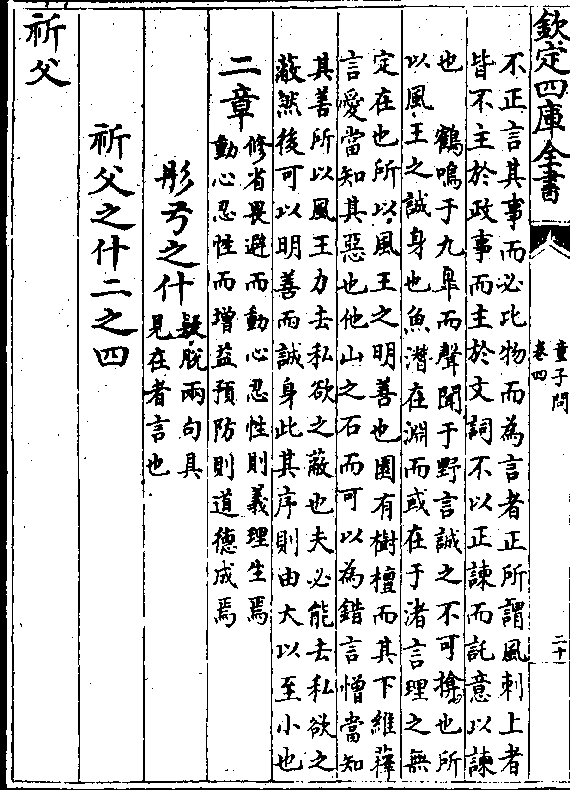 欽定四庫全書
童子問
卷四
二十
不正言其事而必比物而為言者正所謂風刺上者
皆不主於政事而主於文詞不以正諫而託意以諫
也　鶴鳴于九臯而聲聞于野言誠之不可揜也所
以風王之誠身也魚潛在淵而或在于渚言理之無
定在也所以風王之明善也園有樹檀而其下維蘀
言愛當知其惡也他山之石而可以為錯言憎當知
其善所以風王力去私欲之蔽也夫必能去私欲之
蔽然後可以明善而誠身此其序則由大以至小也
二章
修省畏避而動心忍性則義理生焉
動心忍性而增益預防則道德成焉
彤弓之什
疑脫兩句具
見在者言也
祈父之什二之四
祈父